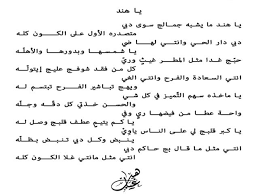 يا هند
يا هند ما يشبه جمالج سوى دبي
متصدره الأول على الكون كله
دبي دار الحي وانتي لها ضي
يا شمسها وبدورها والأهله
حبج غدا مثل المطر غيث وري
كل من فقد شوفج عليج إيتوله
انتي السعادة والفرح وانتي الفي
ويهج تباشير الفرح تبتسم له
يا ماخذه سهم التميز في كل شي
والحسن خذتي كل دقه وجله
واحة عطا من فيضها روي
يا كم يتيم عطف قلبج وصل له
يا كبر قلبج لي على الناس ياوي
ينبض وكل دبي تنبض بظله
انتي مثل ما قال بج حاكم دبي
انتي مثل مانتي غلا الكون كله